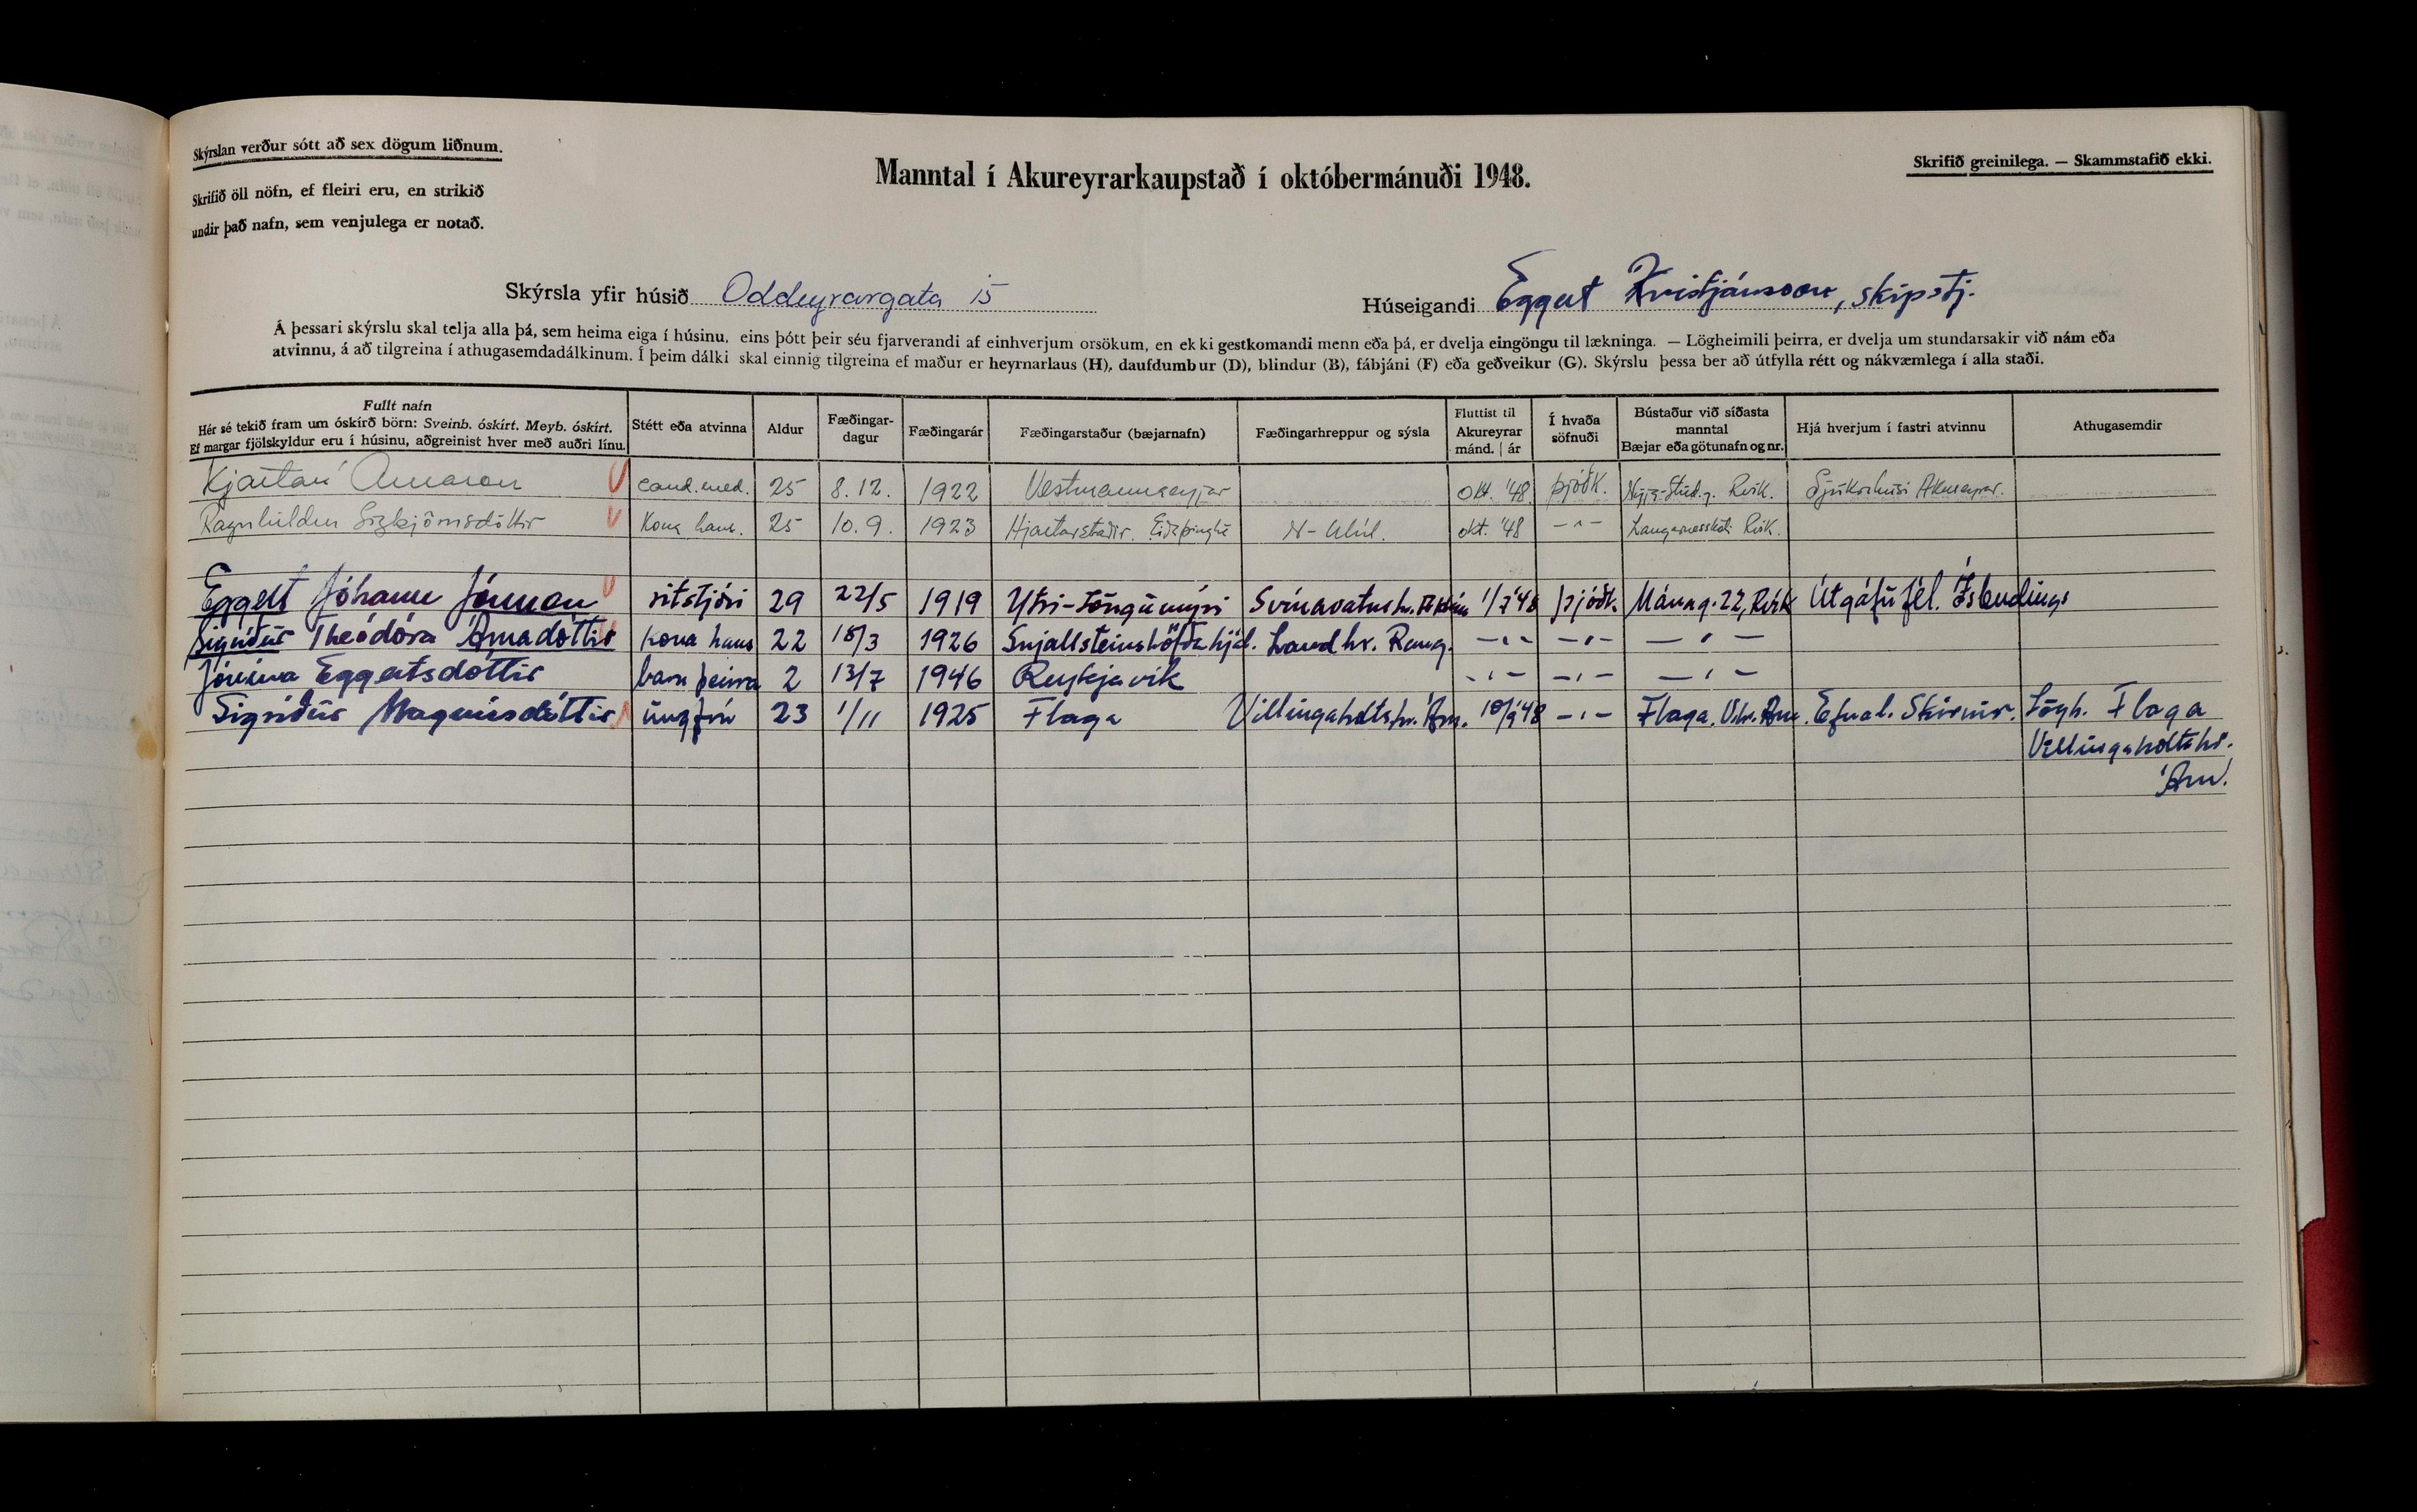 Skýrslan verður sótt að sex dögum liðnum.
Skrifið öll nöfn, ef fleiri eru, en strikið
undir það nafn, sem venjulega er notað.
Manntal í Akureyrarkaupstað í októbermánuði 1948.
Skrifið greinilega. — Skammstafið ekki.
Skýrsla yfir húsið Oddeyrargata 15
Húseigandi Eggert Kristjánsson, skipstj.
Á þessari skýrslu skal telja alla þá, sem heima eiga í húsinu, eins þótt þeir séu fjarverandi af einhverjum orsökum, en ekki gestkomandi menn eða þá, er dvelja eingöngu til lækninga. — Lögheimili þeirra, er dvelja um stundarsakir við nám eða
atvinnu, á að tilgreina í athugasemdadálkinum. Í þeim dálki skal einnig tilgreina ef maður er heyrnarlaus (H), daufdumbur (D), blindur (B), fábjáni (F) eða geðveikur (G). Skýrslu þessa ber að útfylla rétt og nákvæmlega í alla staði.
Fullt nafn
Hér sé tekið fram um óskírð börn: Sveinb. óskírt. Meyb. óskírt.
Ef margar fjölskyldur eru í húsinu, aðgreinist hver með auðri línu.
Stétt eða atvinna
Aldur
Fæðingar-
dagur
Fæðingarár
Fæðingarstaður (bæjarnafn)
Fæðingarhreppur og sýsla
Fluttist til
Akureyrar
mánd. | ár
Í hvaða
söfnuði
Bústaður við síðasta
manntal
Bæjar eða götunafn og nr.
Hjá hverjum í fastri atvinnu
Athugasemdir
Kjartan Árnason cand. med. 25 8. 12. 1922 Vestmannaeyjar okt. '48 þjóðk. Nýja-Stúd.g. Rvík. Sjúkrahúsi Akureyrar.
Ragnhildur Sigbjörnsdóttir Kona hans. 25 10. 9. 1923 Hjartarstaðir. Eiðaþinghá N-Múl. okt. '48 -"- Laugarnesskóli Rvík.
Eggert Jóhann Jónsson ritstjóri 29 22/5 1919 Ytri-Löngumýri Svínavatnshr. A-Hún 1/7 '48 þjóðk. Mánag. 22, Rvík Útgáfufél. Íslendings
Sigríður Theódóra Árnadóttir kona hans 22 18/3 1926 Snjallsteinshöfðahjál. Landhr. Rang. -"- -"- -"-
Jónína Eggertsdóttir barn þeirra 2 13/7 1946 Reykjavík -"- -"- -"-
Sigríður Magnúsdóttir ungfrú 23 1/11 1925 Flaga Villingaholtshr. Árn. 10/9 '48 -"- Flaga, V.hr. Árn. Efnal. Skírnir. Lögh. Flaga
Villingaholtshr.
Árn.